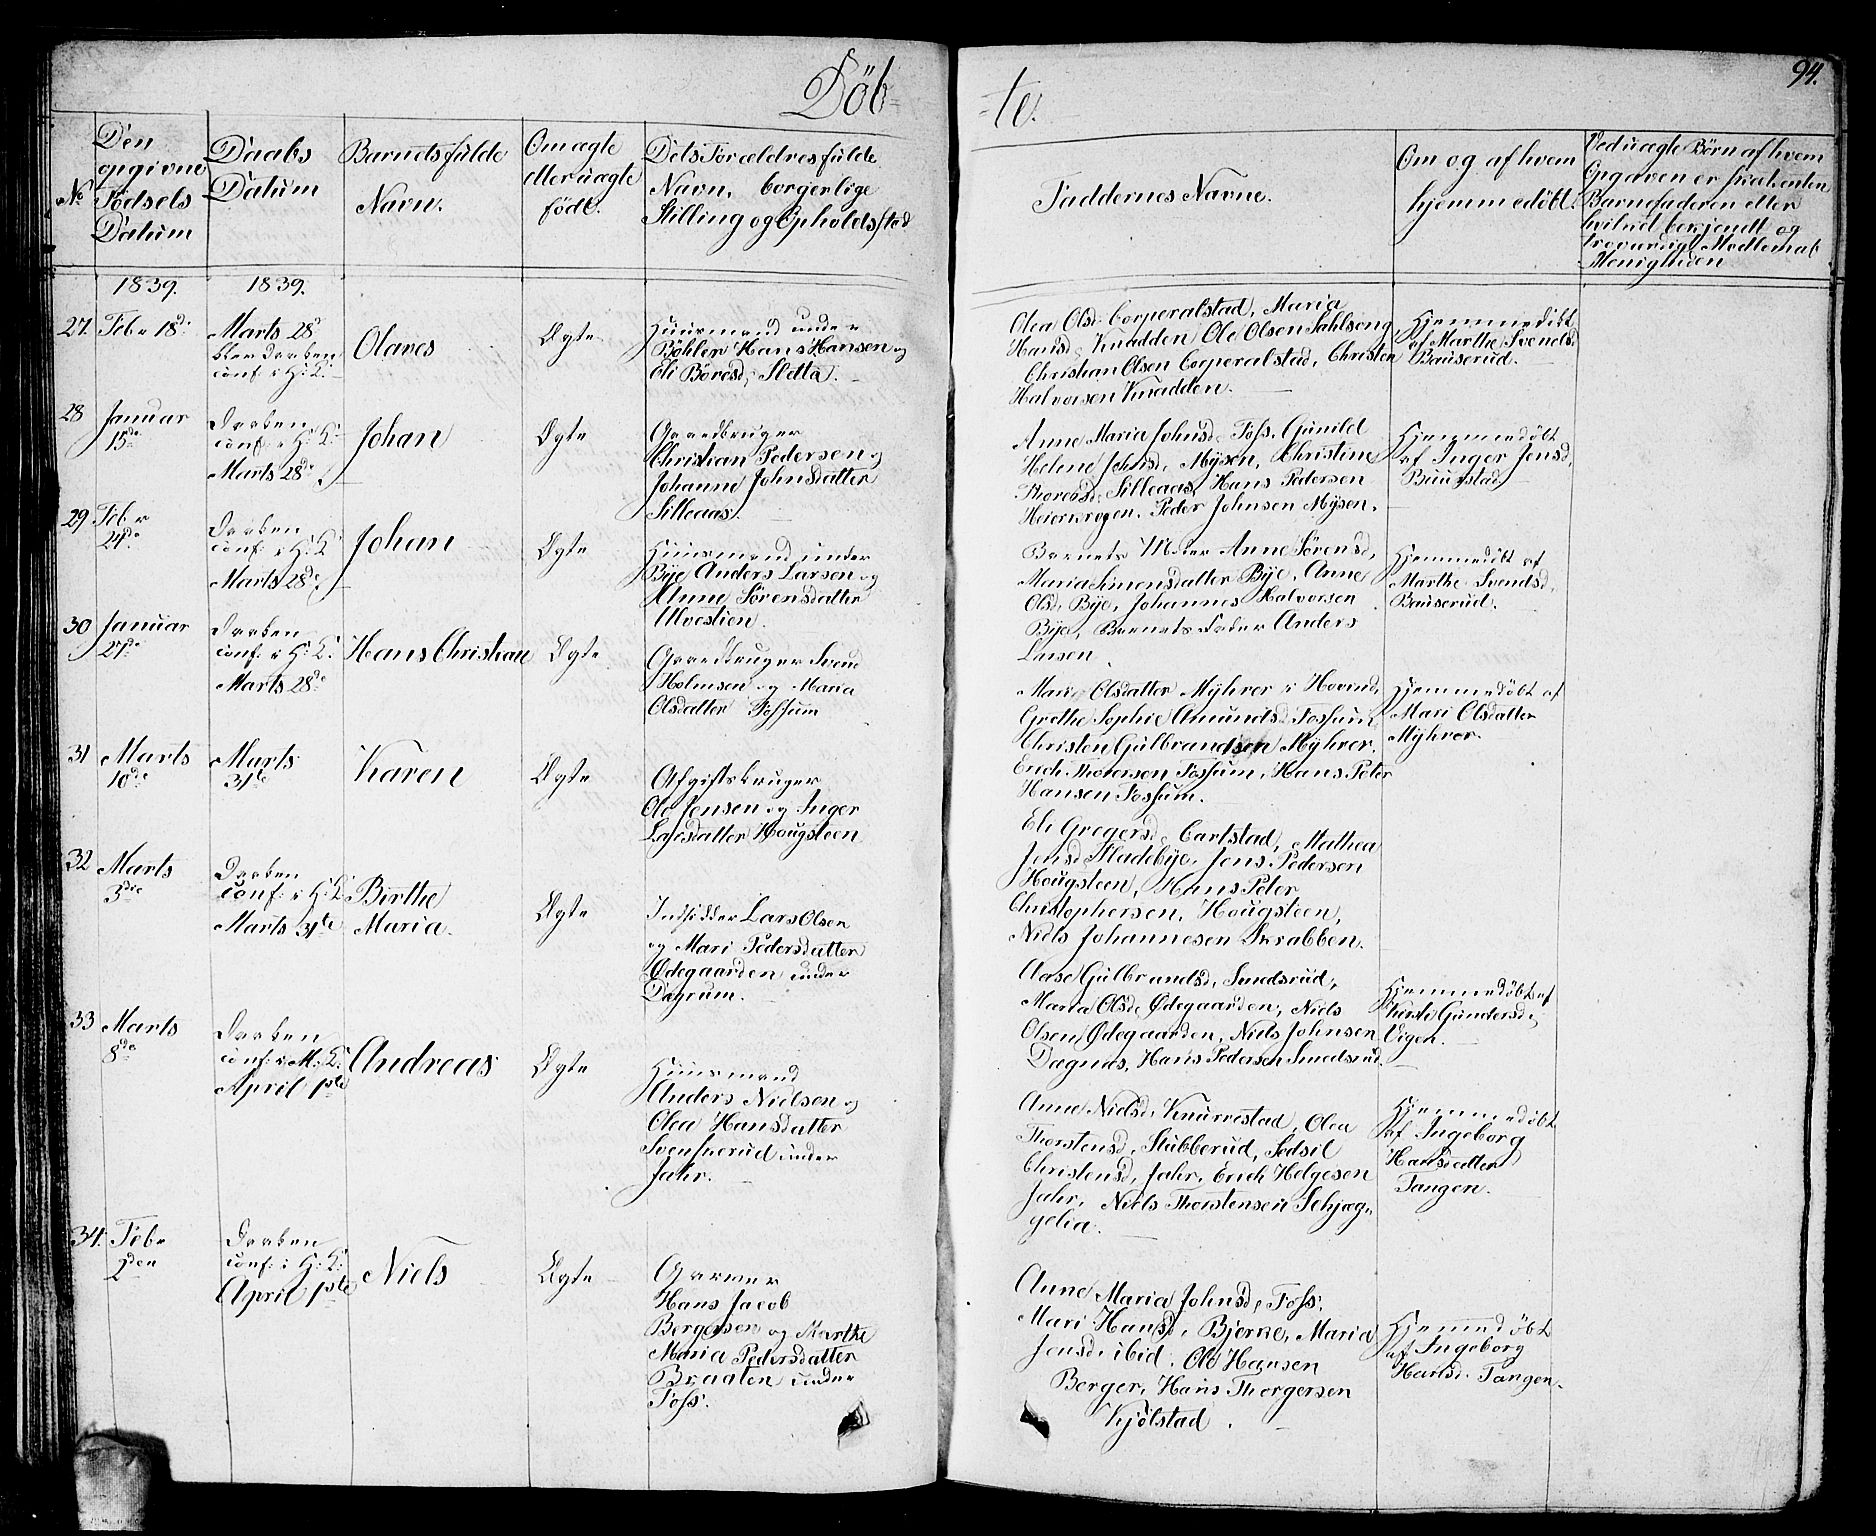 Döb=
=te.
94.
No
Den
opgivne
Födsels
Datum
Daabs
Datum
Barnets fulde
Navn.
Om ægte
eller uægte
født.
Dets Forældres fulde
Navn, borgerlige
Stilling og Opholdssted
Faddernes Navne.
Om og af hvem
hjemmedöbt.
Ved uægte Börn af hvem
Opgaven er
Barnefaderen eller
hvilket bekjendt og
troværdigt Medlem af
Menigheden
1839.
1839.
27.
Febr 18de
Marts 28de
blev Daaben
conf. i H: K:
Olaves
Ægte
Huusmand under
Böhler Hans Hansen og
Eli Böresd. Sletta.
Olea Olsd. Corperalstad, Maria
Hansd. Knadden Ole Olsen Sahlseng,
Christian Olsen Corperalstad, Christen
Halvorsen Knadden.
Hjemmedöbt
af Marthe Svendsd.
Bauserud.
28
Januar
15de
Daaben
conf. i H: K:
Marts 28de
Johan
Ægte
Gaardbruger
Christian Pedersen og
Johanne Johnsdatter
Silleaas.
Anne Maria Johnsd. Foss, Gunild
Helene Johnsd. Mÿsen, Christine
Thoresd. Silleaas, Hans Pedersen
Peder Johnsen Mÿsen.
Hjemmedöbt
af Inger Jensd.
Buustad
29
Febr
24de
Daaben
conf: i H: K
Marts 28de
Johan
Ægte
Huusmand under
Bÿe Anders Larsen og
Anne Sörensdatter
Ulvestien.
Barnets Moder Anne Sörensd,
Maria Simensdatter Bÿe, Anne
Olsd. Bÿe, Johannes Halvorsen
Bÿe, Barnets Fader Anders
Larsen
Hjemmedöbt af
Marthe Svendsd.
Bauserud.
30
Januar
27de
Daaben
conf. i H: K:
Marts 28de
Hans Christian
Ægte
Gaardbruger Svend
Holmsen og Maria
Olsdatter Fossum
Mari Olsdatter Mÿhrer i Hovind,
Grethe Sophie Amundsd Fossum,
Christen Gulbrandsen Mÿhrer,
Erich Thoresen Fossum, Hans Peter
Hansen Fossum.
Hjemmedöbt af
Mari Olsdatter
Mÿhrer.
31
Marts
10de
Marts
31te
Karen
Ægte
Afgiftsbruger
Ole Jensen og Inger
Larsdatter Hougsteen
Eli Gregersd. Carlstad, Mathea
Jensd Fladebÿe, Jens Pedersen
Hougsteen, Hans Peter
Christophersen, Hougsteen,
Niels Johannesen Skrabben.
32
Marts
3die
Daaben
conf: i H: K
Marts 31te
Berthe
Maria.
Ægte
Indsidder Lars Olsen
og Mari Pedersdatter
Ødegaarden under
Dægrum.
Aase Gulbrandsd, Smedsrud,
Maria Olsd. Ødegaarden, Niels
Olsen Ødegaarden, Niels Johnsen
Dægnæs, Hans Pedersen Smedsrud.
Hjemmedöbt af
Kirsti Gundersd.
Vigen.
33
Marts
8de
Daaben
conf: i M: K:
April 1ste
Andreas
Ægte
Huusmand
Anders Nielsen og
Olea Hansdatter
Svenskerud under
Jahr.
Anne Nielsd. Knurrestad, Olea
Thorstensd, Stubberud, Sedsil
Christensd, Jahr, Erich Helgesen
Jahr, Niels Thorstensen Schjæg-
gelia.
Hjemmedöbt
af Ingeborg
Hansdatter
Tangen.
34.
Febr
2den
Daaben
conf: i H: K:
April 1ste
Niels
Ægte
Garver
Hans Jacob
Bergersen og Marthe
Maria Pedersdatter
Braaten under
Foss.
Anne Maria Johnsd, Foss,
Mari Hansd, Bjerke, Maria
Jensd. ibid. Ole Hansen
Berger, Hans Thorgersen
Kjölstad.
Hjemmedöbt
af Ingeborg
Hansd. Tangen.